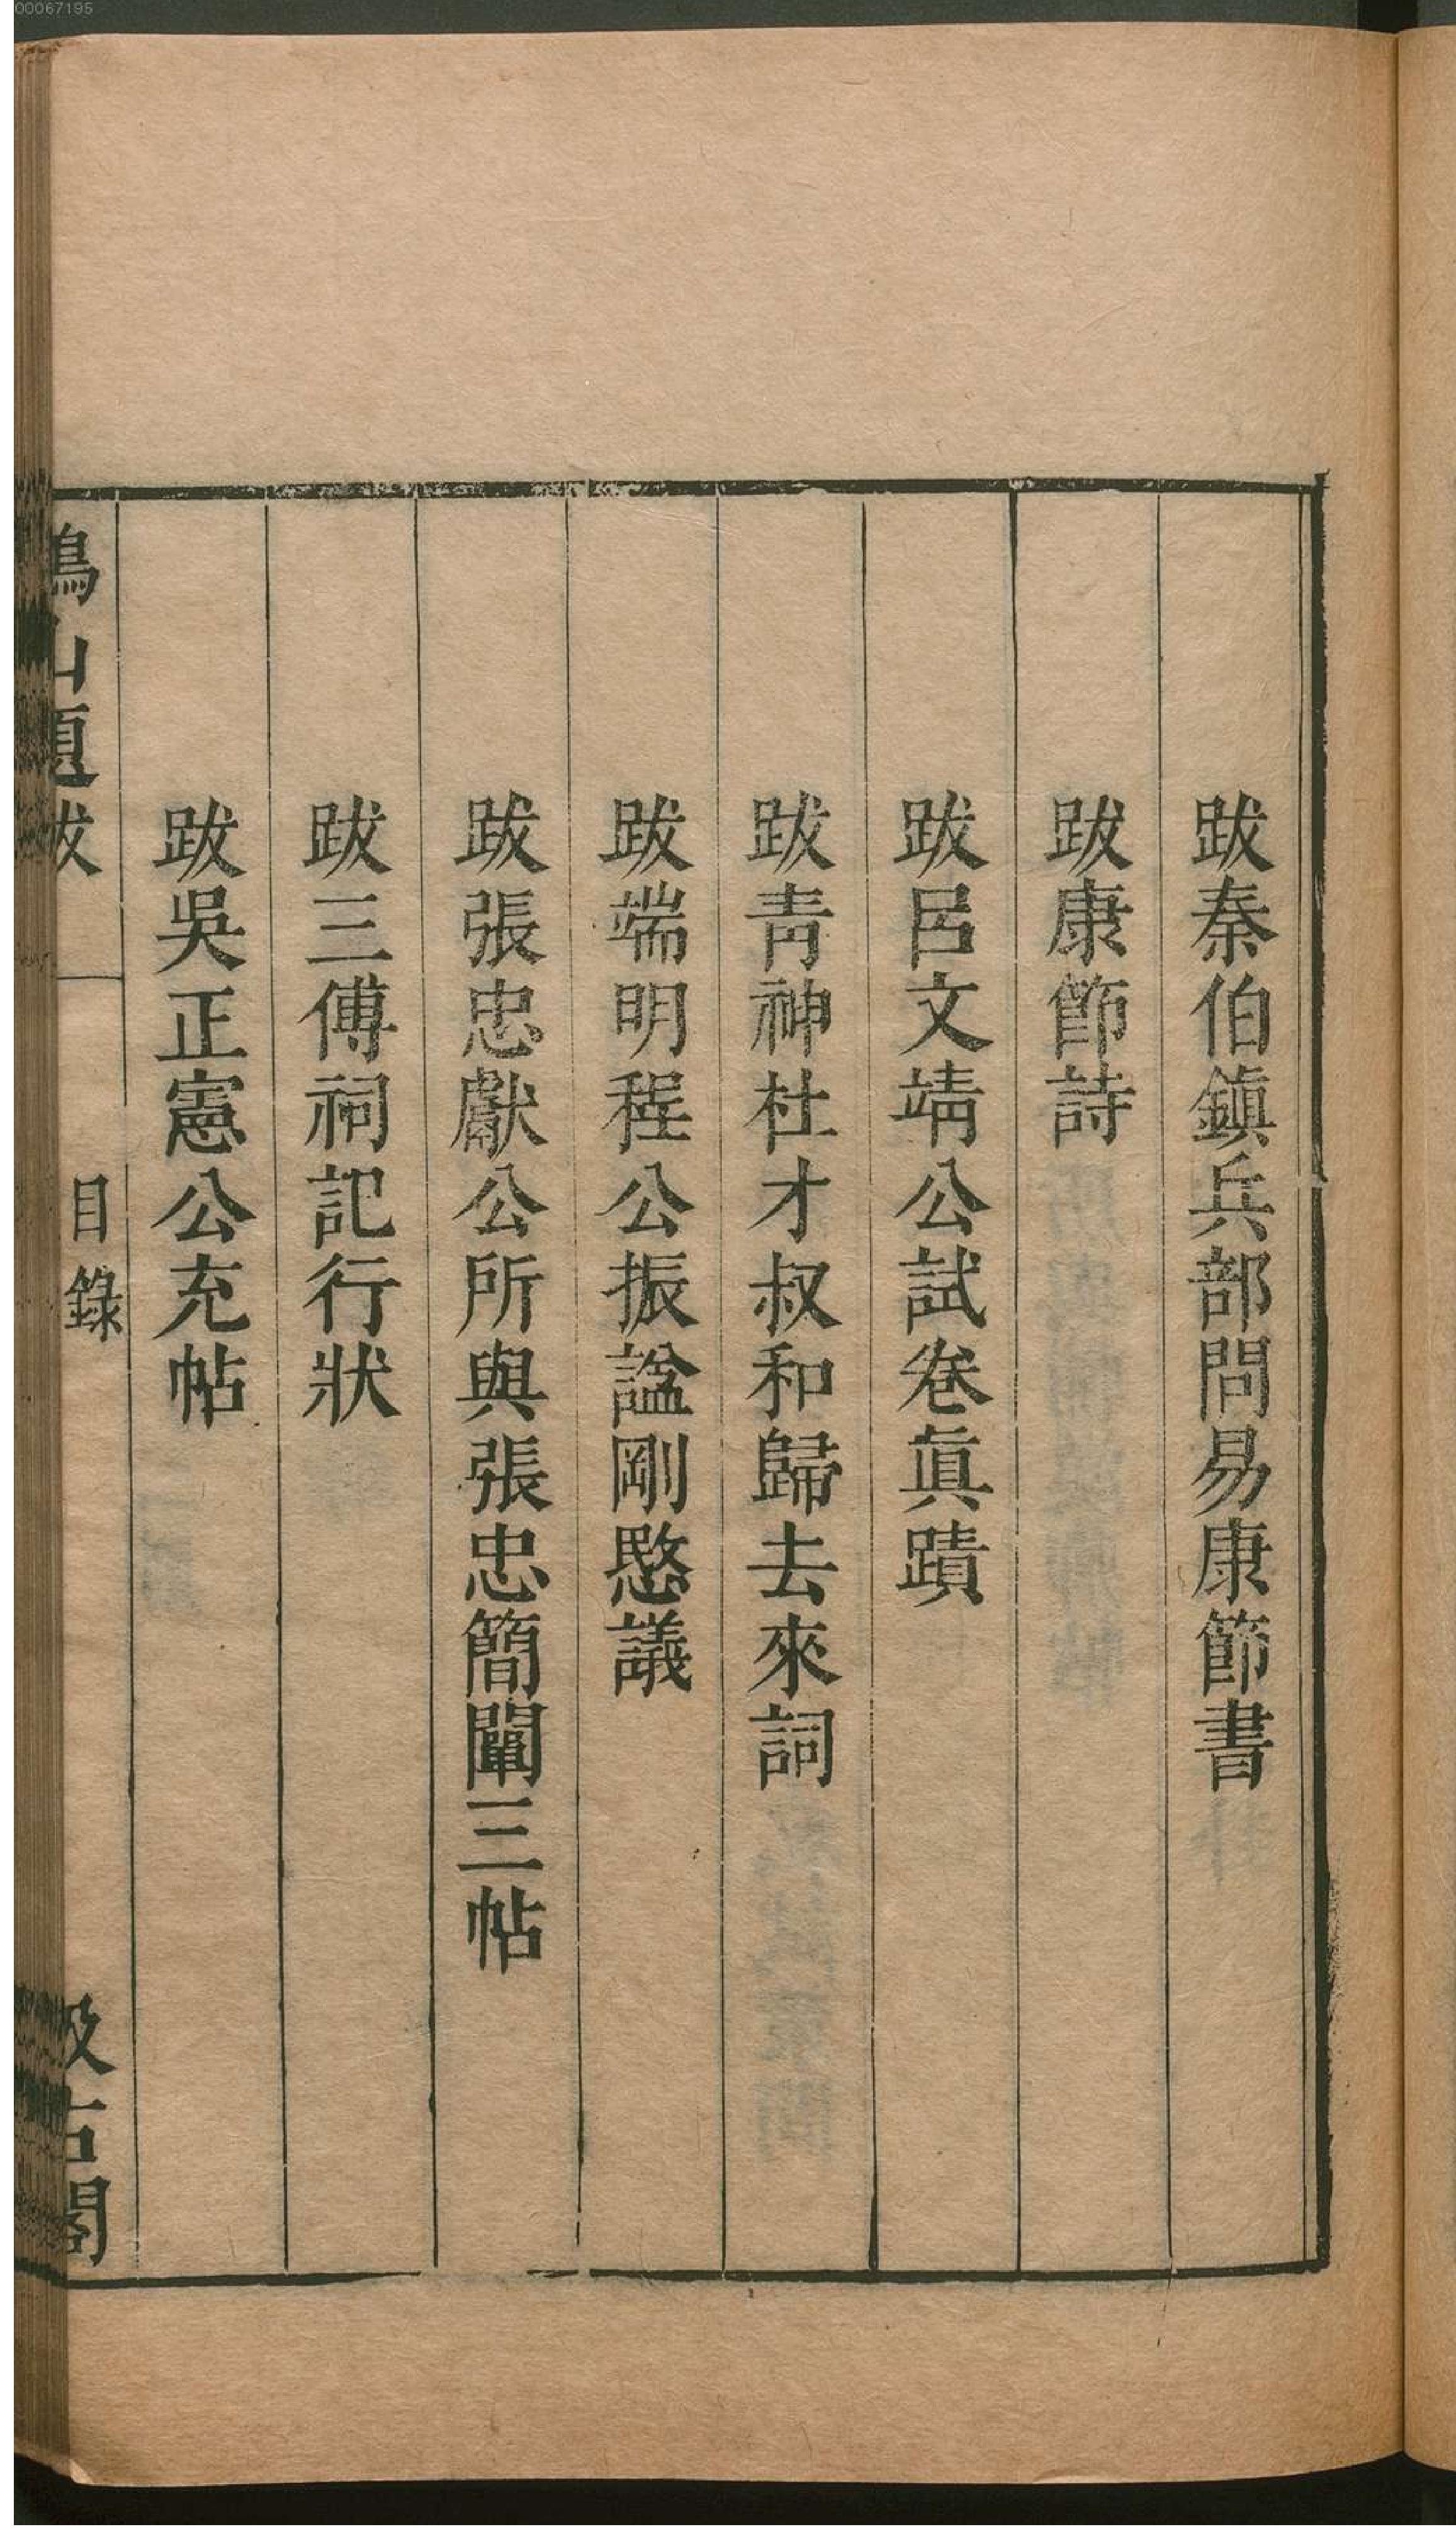 00067195
跋秦伯鎮兵部問易康節書
跋康節詩
跋呂文靖公試卷眞蹟
跋靑神杜才叔和歸去來詞
跋端明程公振諡剛愍議
跋張忠獻公所與張忠簡闡三帖
跋三傅祠記行狀
跋吳正憲公充帖
鶴山題跋
目錄
汲古閣